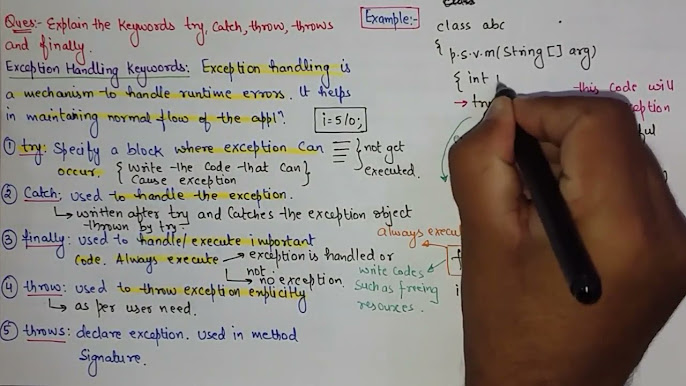 Ques:- Explain the Keywords try, Catch, throw, throws
and finally.
Exception Handling Keywords: Exception handling is
a mechanism to handle runtime errors. It helps
in maintaning normal flow of the appln.
i=5/0;
① try: Specify a block where exception can
occur. { Write the Code that Can
Cause exception
} not get
executed.
② Catch: used to handle the exception.
↳ written after try and Catches the exception object
thrown by try.
③ finally: used to handle/execute important
Code. Always execute → exception is handled or
not.
↳ no exception.
④ throw: used to throw exception explicitly
↳ as per user need.
⑤ throws: declare exception. used in method
Signature.
Example:-
class abc
{ p.s.v.m(String [] arg)
{ int
→
this Code will
exception
Always
write Codes
Such as freeing
resources.